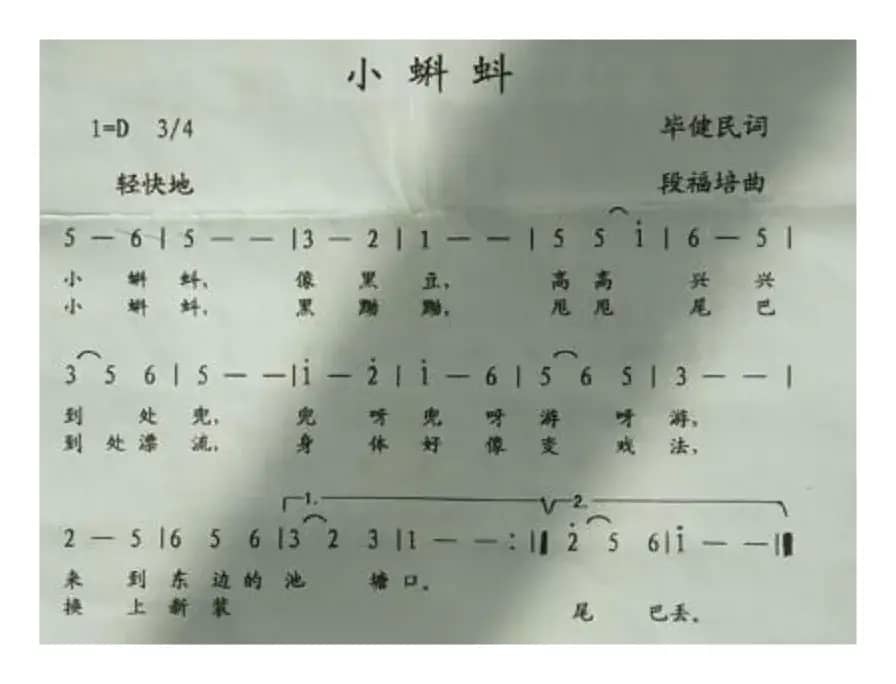 小蝌蚪
1=D 3/4 毕健民词
轻快地 段福培曲
5 — 6 | 5 — — | 3 — 2 | 1 — — | 5 5 i̇ | 6 — 5 |
小 蝌 蚪, 像 黑 豆, 高 高 兴 兴
小 蝌 蚪, 黑 黝 黝, 甩 甩 尾 巴
3 5 6 | 5 — — | i̇ — 2̇ | i̇ — 6 | 5 6 5 | 3 — — |
到 处 兜, 兜 呀 兜 呀 游 呀 游,
到 处 漂 流, 身 体 好 像 变 戏 法,
1. 2.
2 — 5 | 6 5 6 | 3 2 3 | 1 — — :‖ 2̇ 5 6 | i̇ — — ‖
来 到 东 边 的 池 塘 口。
换 上 新 装 尾 巴 丢。